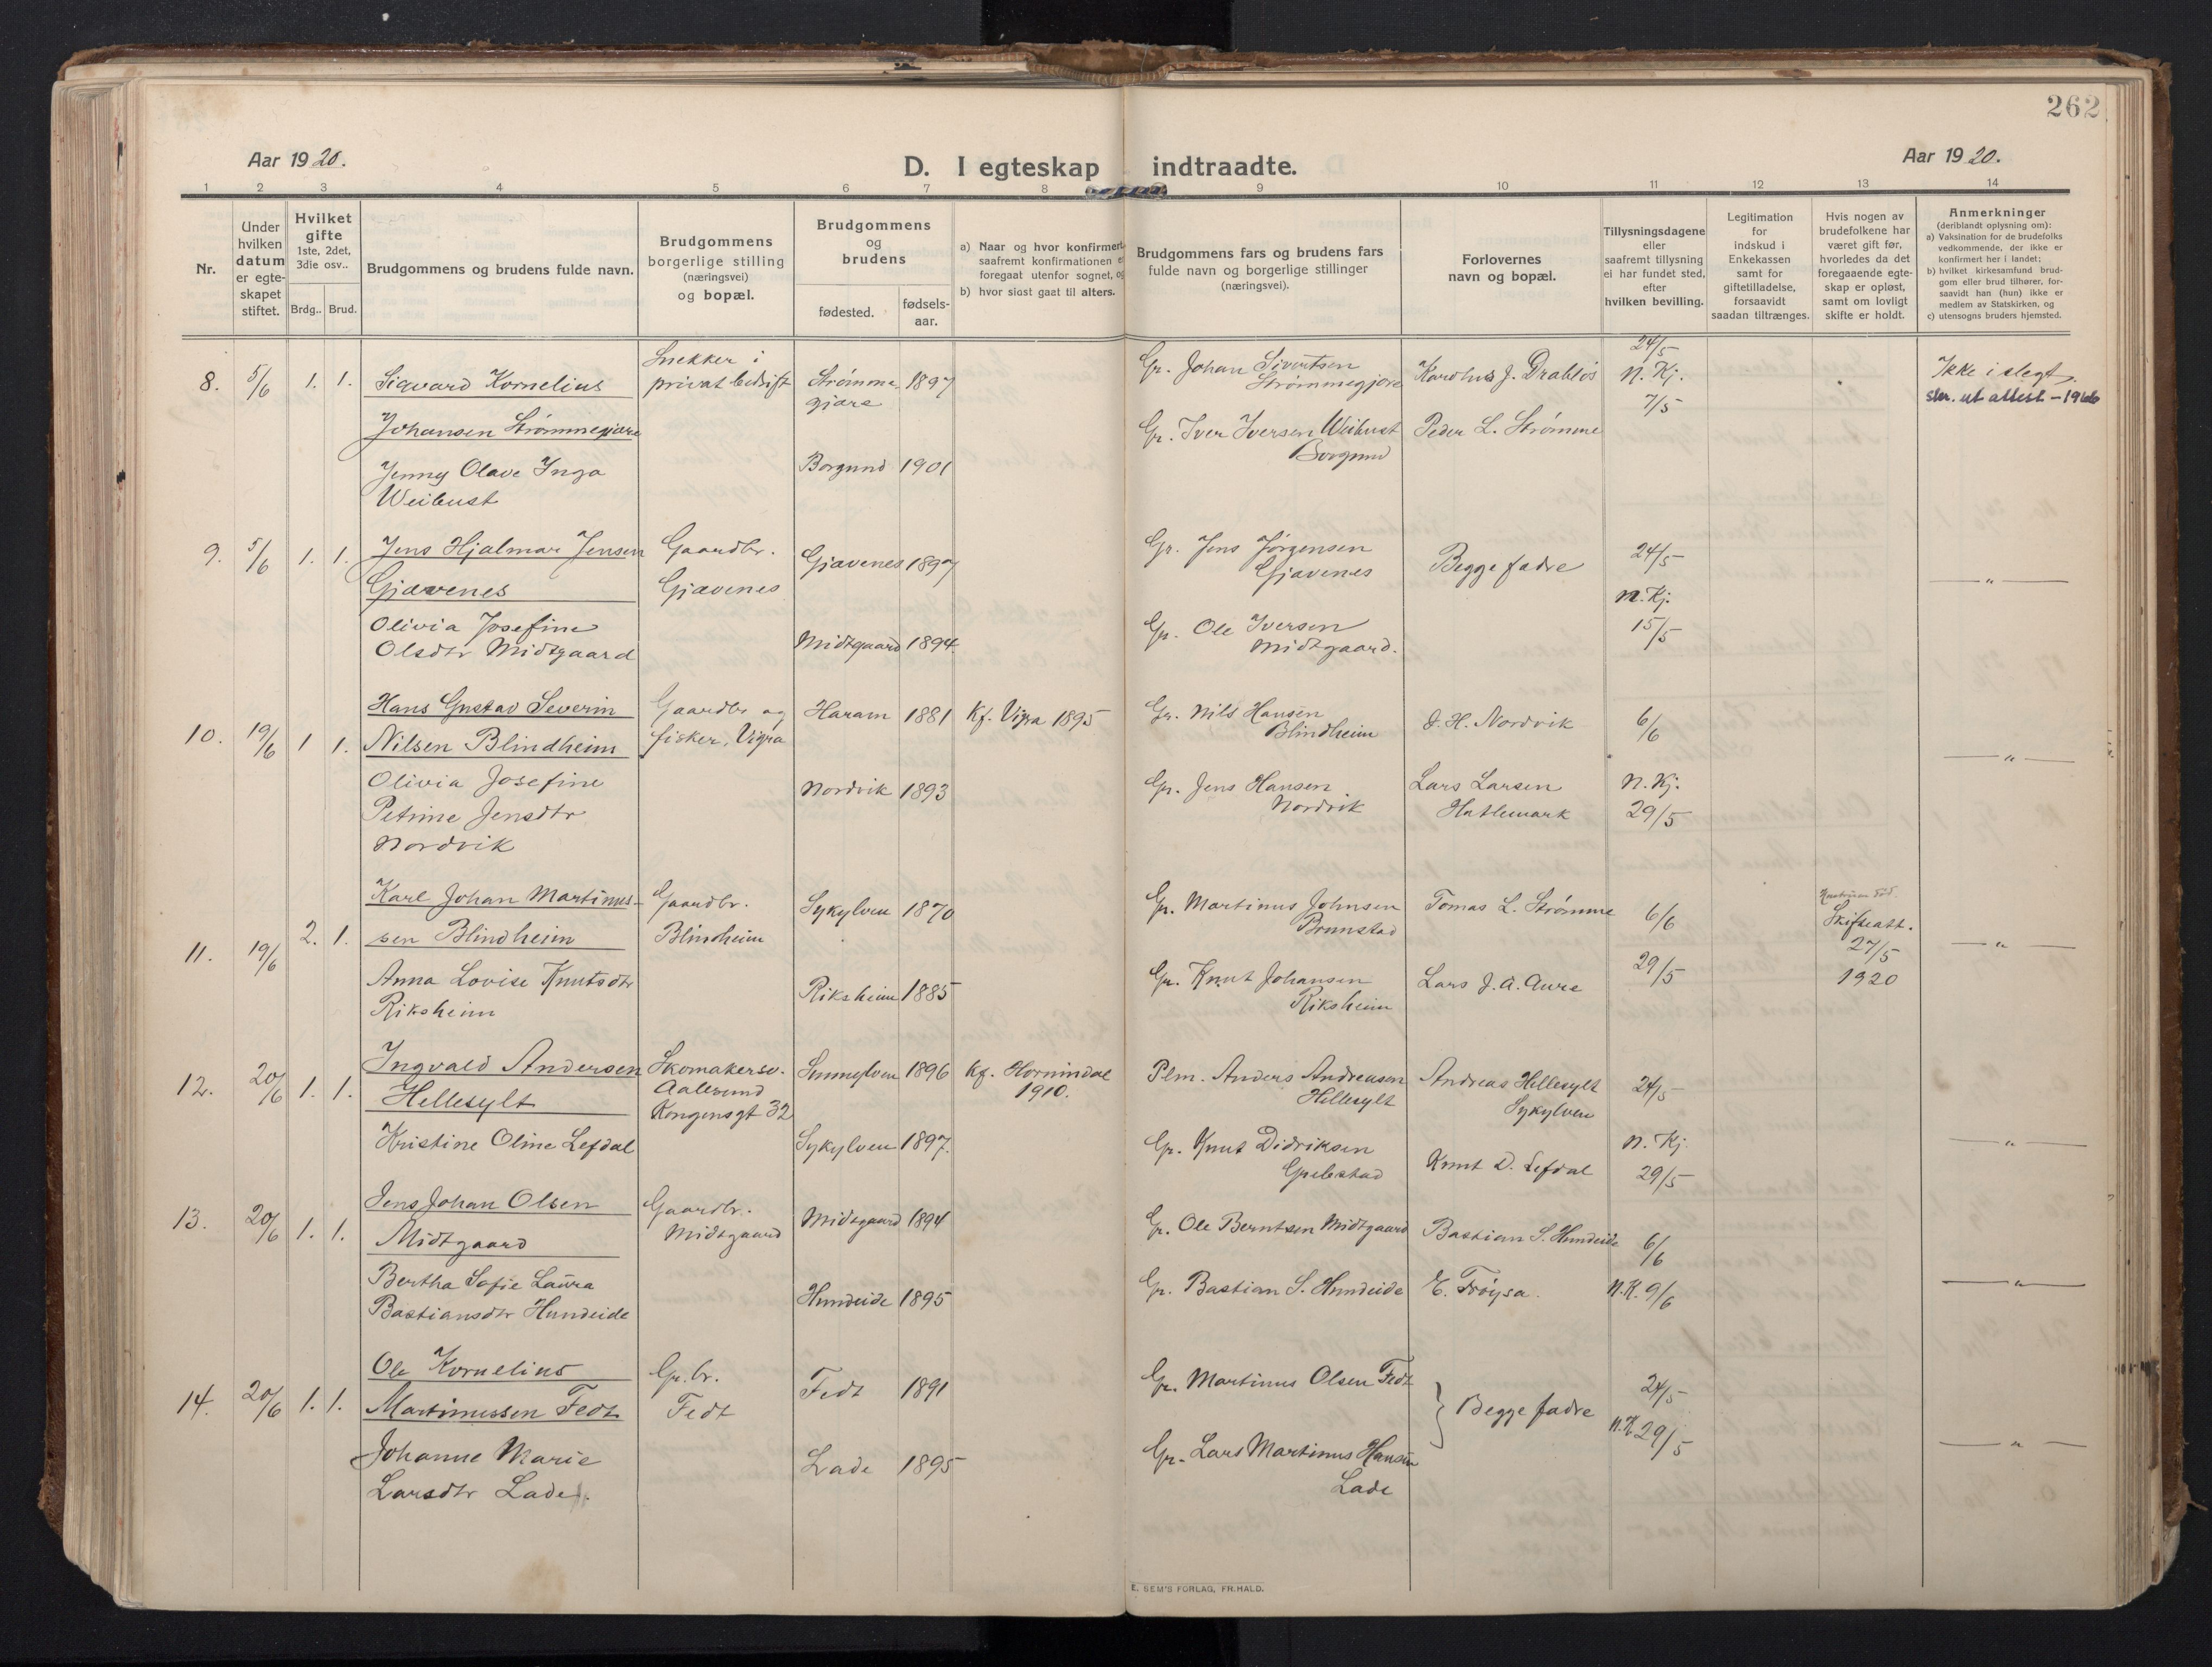 262
Aar 1920.
D. I egteskap indtraadte.
Aar 1920.
1 2 3 4 5 6 7 8 9 10 11 12 13 14
Nr.
Under
hvilken
datum
er egte-
skapet
stiftet.
Hvilket
gifte
1ste, 2det,
3die osv..
Brdg.. Brud.
Brudgommens og brudens fulde navn.
Brudgommens
borgerlige stilling
(næringsvei)
og bopæl.
Brudgommens
og
brudens
fødested.
fødsels-
aar.
a) Naar og hvor konfirmert,
saafremt konfirmationen e
foregaat utenfor sognet, og
b) hvor sidst gaat til alters.
Brudgommens fars og brudens fars
fulde navn og borgerlige stillinger
(næringsvei).
Forlovernes
navn og bopæl.
Tillysningsdagene
eller
saafremt tillysning
ei har fundet sted,
efter
hvilken bevilling.
Legitimation
for
indskud i
Enkekassen
samt for
giftetilladelse,
forsaavidt
saadan tiltrænges.
Hvis nogen av
brudefolkene har
været gift før,
hvorledes da det
foregaaende egte-
skap er opløst,
samt om lovligt
skifte er holdt.
Anmerkninger
(deriblandt oplysning om):
a) Vaksination for de brudefolks
vedkommende, der ikke er
konfirmert her i landet;
b) hvilket kirkesamfund brud-
gom eller brud tilhører, for-
saavidt han (hun) ikke er
medlem av Statskirken, og
c) utensogns bruders hjemsted.
8. 5/6 1. 1.
Sigvard Kornelius
Johansen Strømmegjære
Jenny Olave Inga
Weibust
Snekker i
privat bedrift
Strømme
gjære
1897
Borgund 1901
Gr. Johan Sivertsen
Strømmegjære
Gr. Iver Iversen Weibust
Borgund
J. Drabløs
Peder L. Strømme
24/5
N. Kj.
7/5
Ikke i slegt.
skr. ut attest - 1966
9. 5/6 1. 1.
Jens Hjalmar Jensen
Gjævenes
Olivia Josefine
Olsdtr Midtgaard
Gaardbr.
Gjævenes
Gjævenes 1897
Midtgaard 1894.
Gr. Jens Jørgensen
Gjævenes
Gr. Ole Iversen
Midtgaard.
Begge fædre
24/5
N. Kj.
15/5
— " —
10. 19/6 1 1.
Hans Gustav Severin
Nilsen Blindheim
Olivia Josefine
Petrine Jensdtr
Nordvik
Gaardbr og
fisker, Vigra
Haram 1881
Nordvik 1893
Kf. Vigra 1895
Gr. Nils Hansen
Blindheim
Gr. Jens Hansen
Nordvik
J. H. Nordvik
Lars Larsen
Hatlemark
6/6
N. Kj.
29/5
— " —
11. 19/6 2. 1.
Karl Johan Martinus-
sen Blindheim
Anna Lovise Knutsdtr
Riksheim
Gaardbr.
Blindheim
Sykylven 1870
Riksheim 1885
Gr. Martinus Johnsen
Brunstad
Gr. Knut Johansen
Riksheim
Tomas L. Strømme
Lars J. A. Aure
6/6
29/5
Hustruen død.
Skifteatt.
27/5
1920
— " —
12. 20/6 1. 1.
Ingvald Andersen
Hellesylt
Kristine Oline Lefdal
Skomakersv.
Aalesund
Kongensgt 32
Sunnylven 1896
Sykylven 1897.
Kf. Hornindal
1910.
Plm. Anders Andreasen
Hellesylt
Gr. Knut Didriksen
Grebstad
Andreas Hellesylt
Sykylven
Knut D. Lefdal
24/5
N. Kj.
29/5
— " —
13. 20/6 1. 1.
Jens Johan Olsen
Midtgaard
Bertha Sofie Laura
Bastiansdtr Hundeide
Gaardbr.
Midtgaard
Midtgaard 1894
Hundeide 1895
Gr. Ole Berntsen Midtgaard
Gr. Bastian S. Hundeide
Bastian S. Hundeide
E. Frøysa.
6/6
N.K. 9/6
— " —
14. 20/6 1. 1.
Ole Kornelius
Martinussen Fedt
Johanne Marie
Larsdtr Lade.
Gr. br.
Fedt
Fedt 1891
Lade 1895
Gr. Martinus Olsen Fedt
Gr. Lars Martinus Hansen
Lade
Begge fædre
24/5
N.K 29/5
— " —
E. SEM'S FORLAG, FR.HALD.